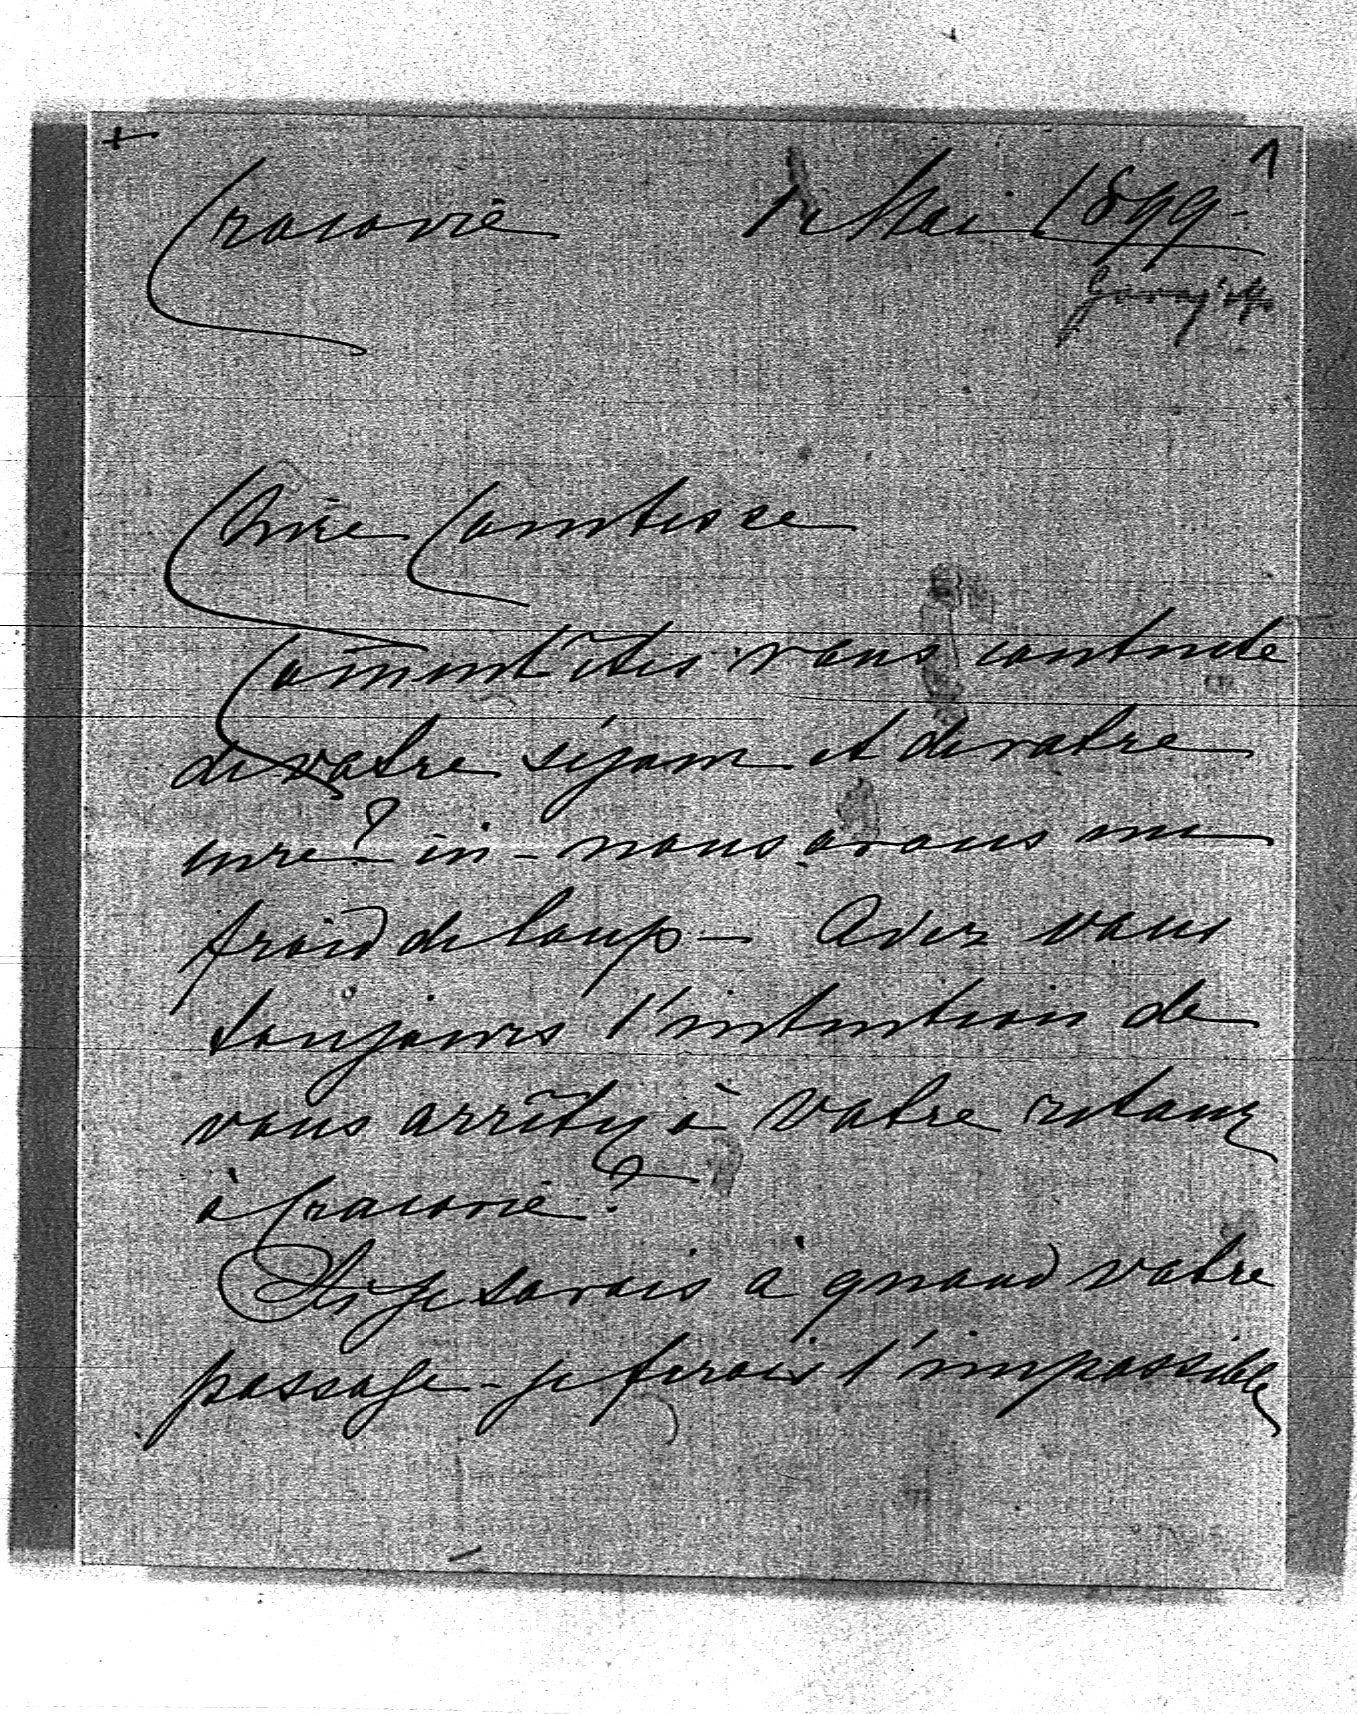 Cracovie 1 Mai 1899.
1
Chère Comtesse
Coment êtes vous contente
de votre séjour et de votre
cure? ici - nous avons un
froid de loup - Avez vous
toujours l'intention de
vous arrêter à votre retour
à Cracovie?
Si je savais à quand votre
passage - je ferais l'impossible